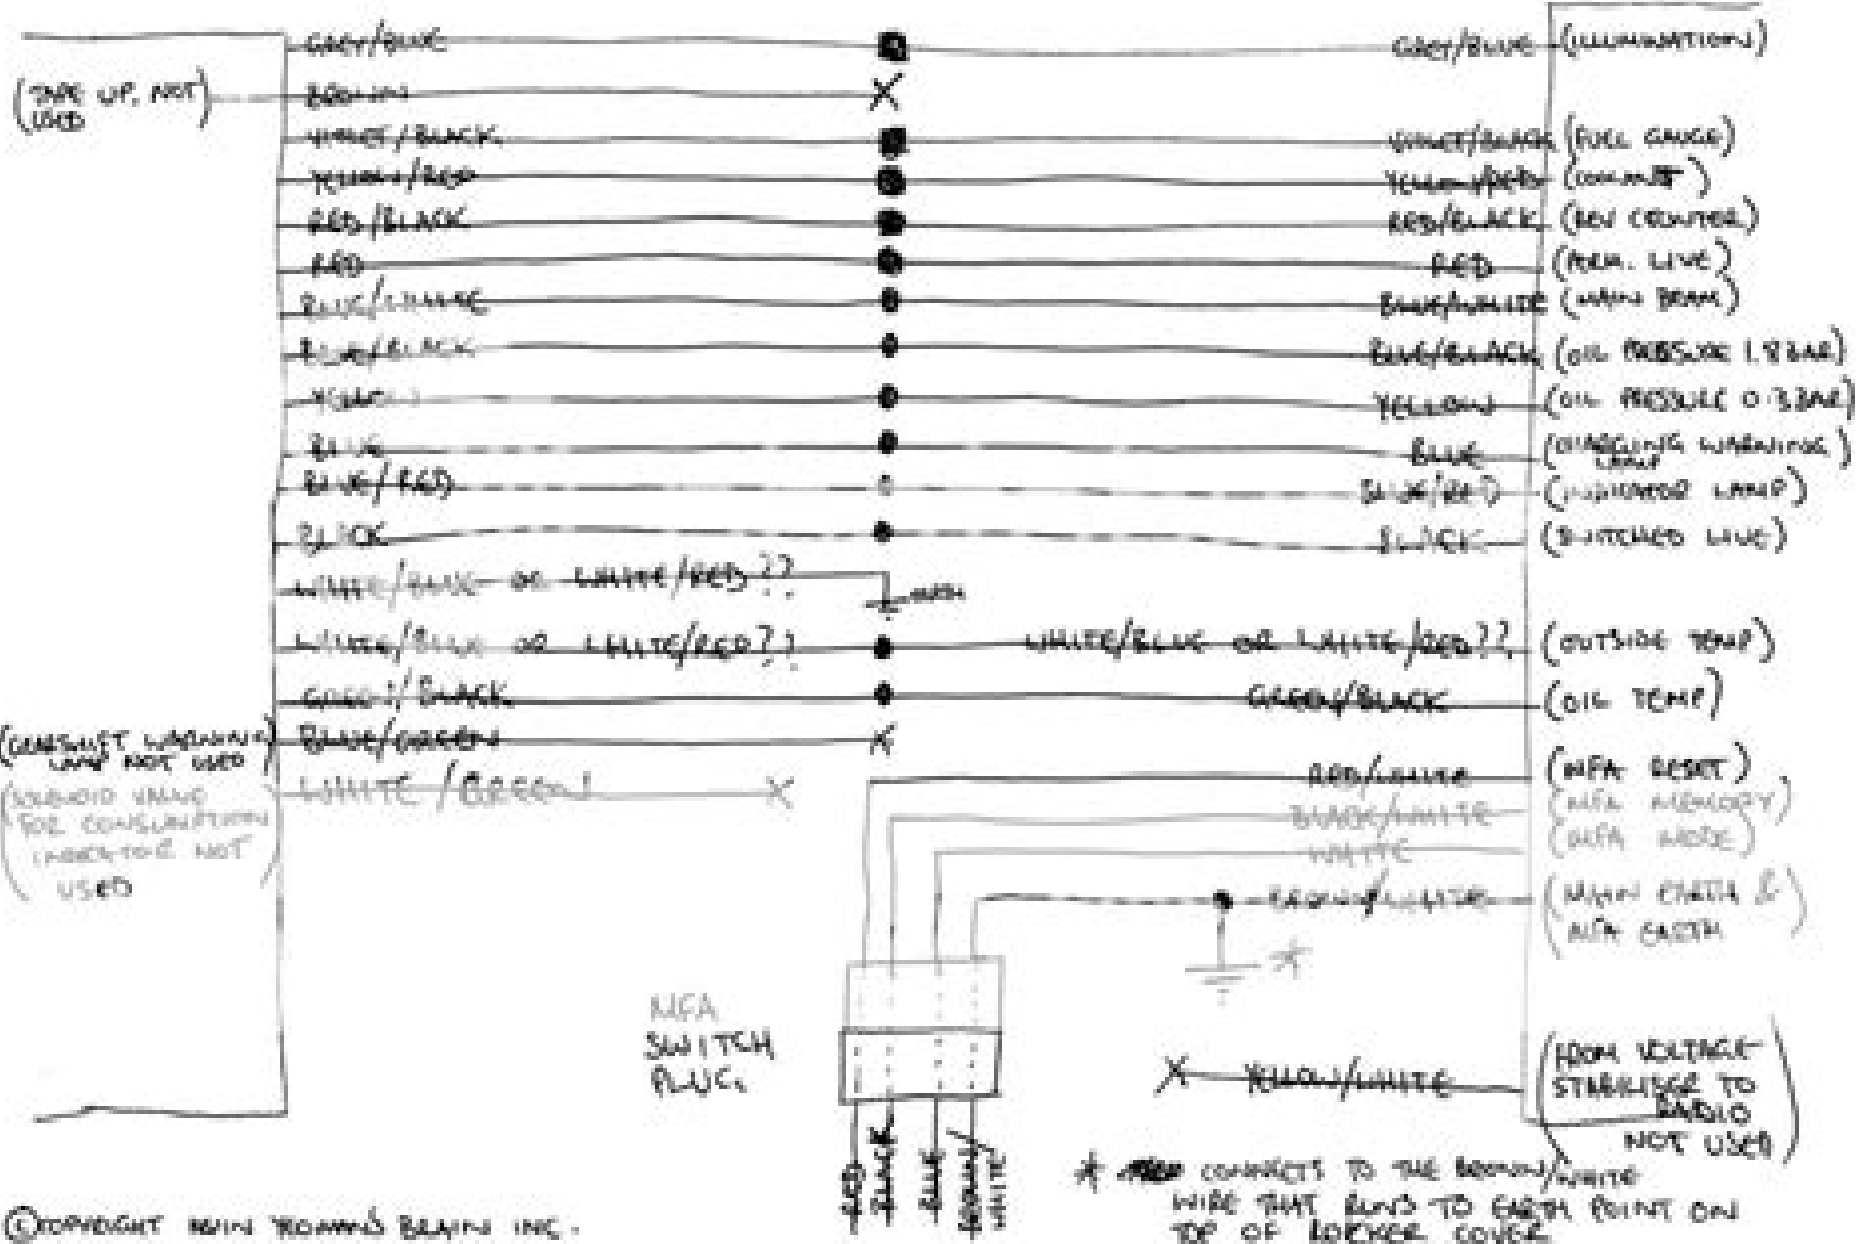 GREY/BLUE GREY/BLUE (ILLUMINATION)
(TAPE UP, NOT USED) BROWN
VIOLET/BLACK VIOLET/BLACK (FUEL GAUGE)
YELLOW/RED YELLOW/RED (COOLANT)
RED/BLACK RED/BLACK (REV COUNTER)
RED RED (PERM. LIVE)
BLUE/WHITE BLUE/WHITE (MAIN BEAM)
BLUE/BLACK BLUE/BLACK (OIL PRESSURE 1.8BAR)
YELLOW YELLOW (OIL PRESSURE 0.3BAR)
BLUE BLUE (CHARGING WARNING LAMP)
BLUE/RED BLUE/RED (INDICATOR LAMP)
BLACK BLACK (SWITCHED LIVE)
WHITE/BLUE OR WHITE/RED?? EARTH
WHITE/BLUE OR WHITE/RED?? WHITE/BLUE OR WHITE/RED?? (OUTSIDE TEMP)
GREEN/BLACK GREEN/BLACK (OIL TEMP)
(GEARSHIFT WARNING LAMP NOT USED) BLUE/GREEN
RED/WHITE (MFA RESET)
(SOLENOID VALVE FOR CONSUMPTION INDICATOR NOT USED) WHITE/GREEN
BLACK/WHITE (MFA MEMORY)
WHITE (MFA MODE)
BROWN/WHITE (MAIN EARTH & MFA EARTH)
*
MFA
SWITCH
PLUG.
YELLOW/WHITE (FROM VOLTAGE
STABILISER TO
RADIO
NOT USED)
RED
BLACK
BLUE
BROWN/WHITE
* CONNECTS TO THE BROWN/WHITE
WIRE THAT RUNS TO EARTH POINT ON
TOP OF ROCKER COVER
© COPYRIGHT BRAIN INC.